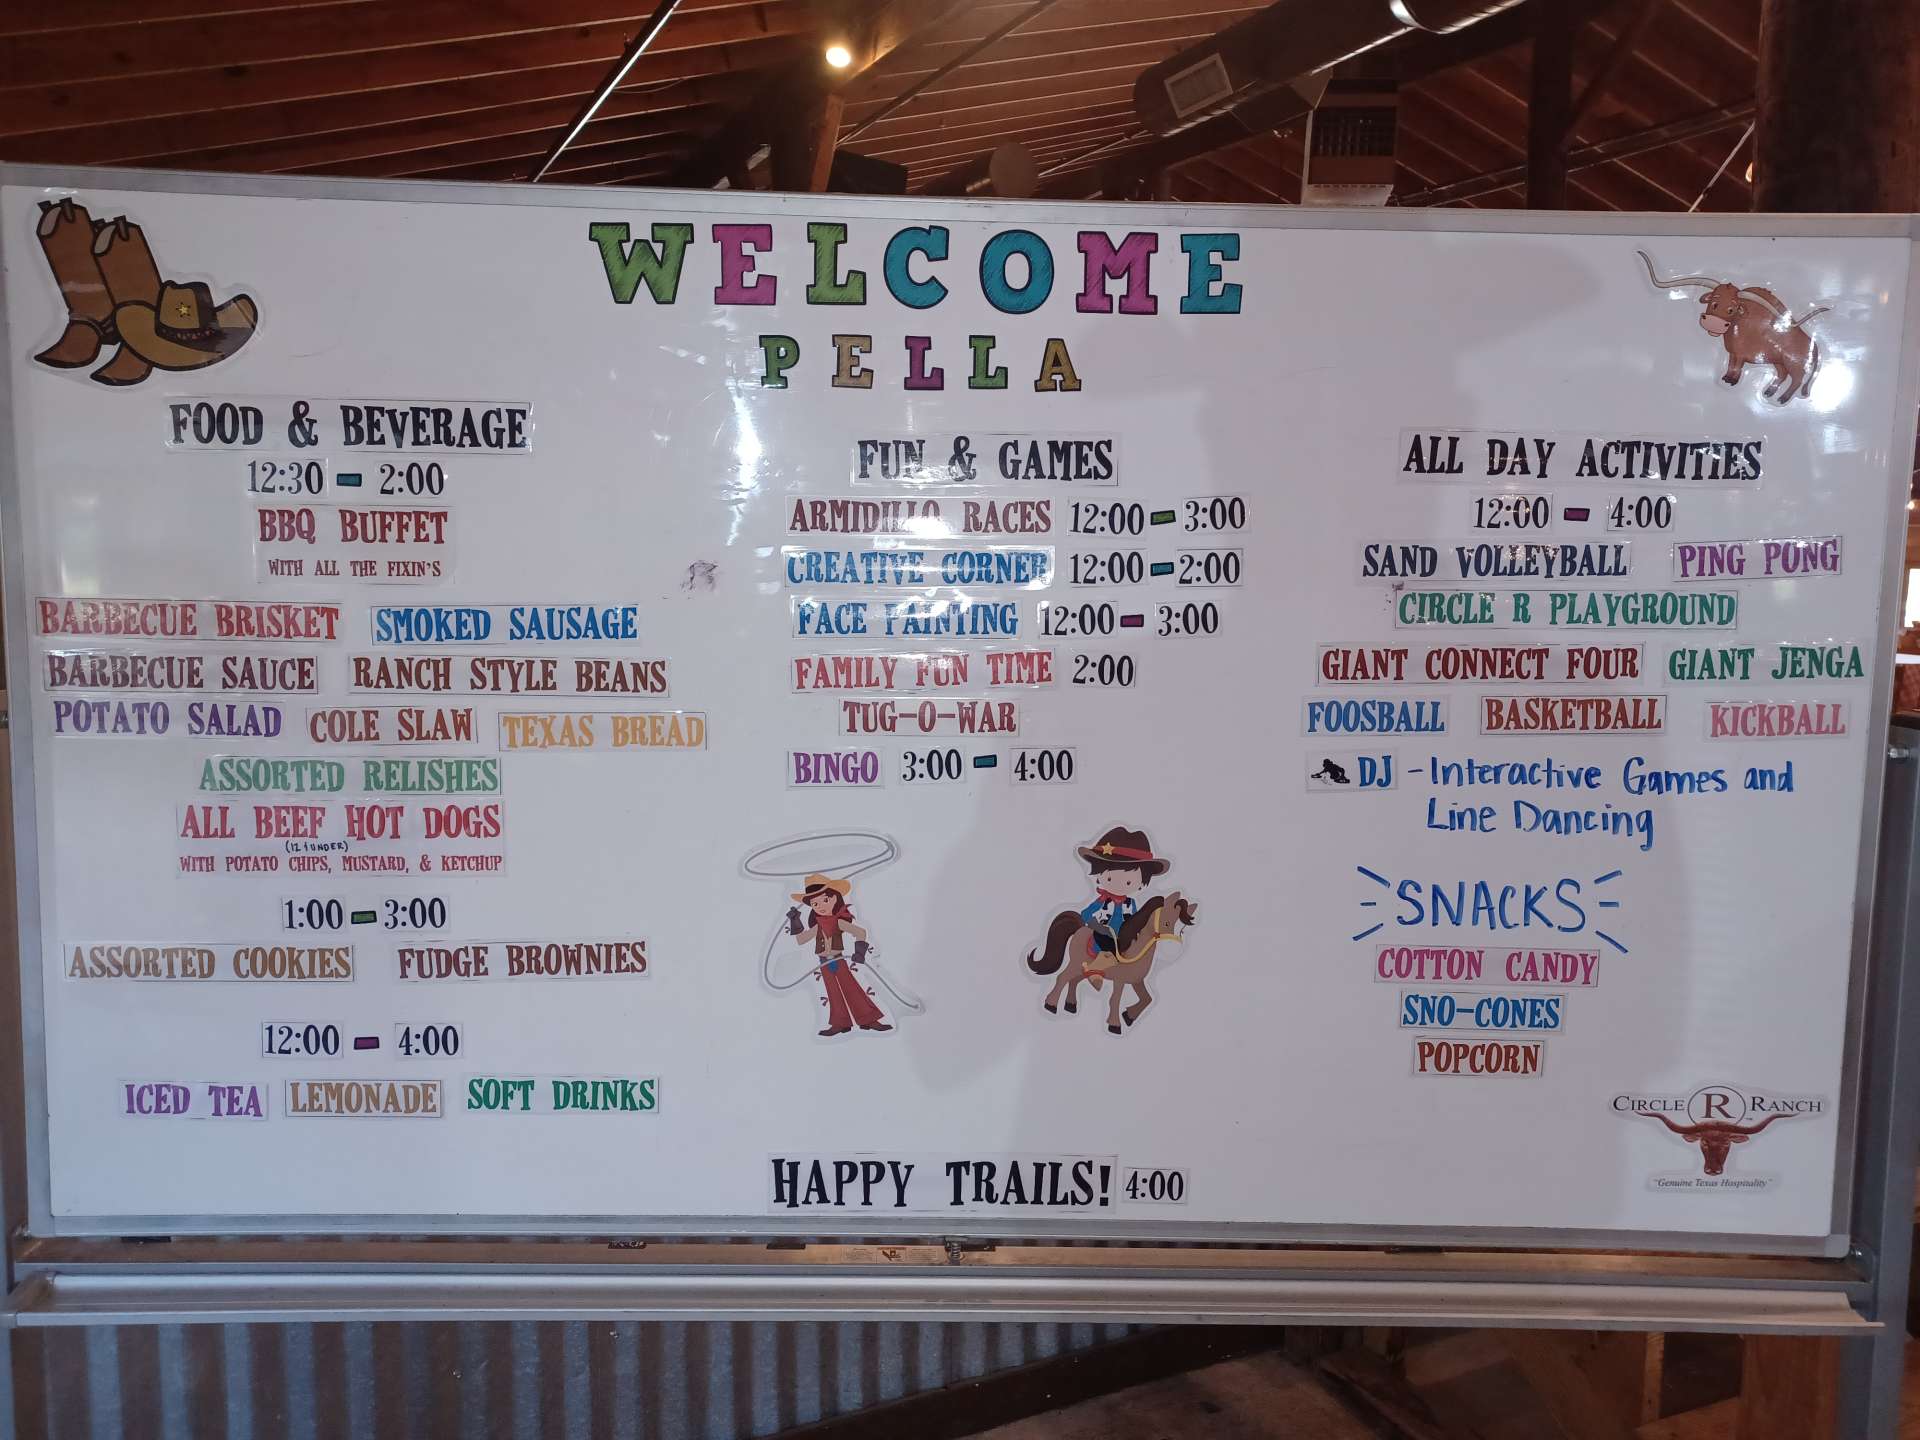 WELCOME
PELLA
FOOD & BEVERAGE
12:30 - 2:00
BBQ BUFFET
WITH ALL THE FIXIN'S
BARBECUE BRISKET SMOKED SAUSAGE
BARBECUE SAUCE RANCH STYLE BEANS
POTATO SALAD COLE SLAW TEXAS BREAD
ASSORTED RELISHES
ALL BEEF HOT DOGS
(12 & UNDER)
WITH POTATO CHIPS, MUSTARD, & KETCHUP
1:00 - 3:00
ASSORTED COOKIES FUDGE BROWNIES
12:00 - 4:00
ICED TEA LEMONADE SOFT DRINKS
FUN & GAMES
ARMIDILLO RACES 12:00 - 3:00
CREATIVE CORNER 12:00 - 2:00
FACE PAINTING 12:00 - 3:00
FAMILY FUN TIME 2:00
TUG-O-WAR
BINGO 3:00 - 4:00
ALL DAY ACTIVITIES
12:00 - 4:00
SAND VOLLEYBALL PING PONG
CIRCLE R PLAYGROUND
GIANT CONNECT FOUR GIANT JENGA
FOOSBALL BASKETBALL KICKBALL
DJ - Interactive Games and
Line Dancing
SNACKS
COTTON CANDY
SNO-CONES
POPCORN
CIRCLE R RANCH
"Genuine Texas Hospitality"
HAPPY TRAILS! 4:00